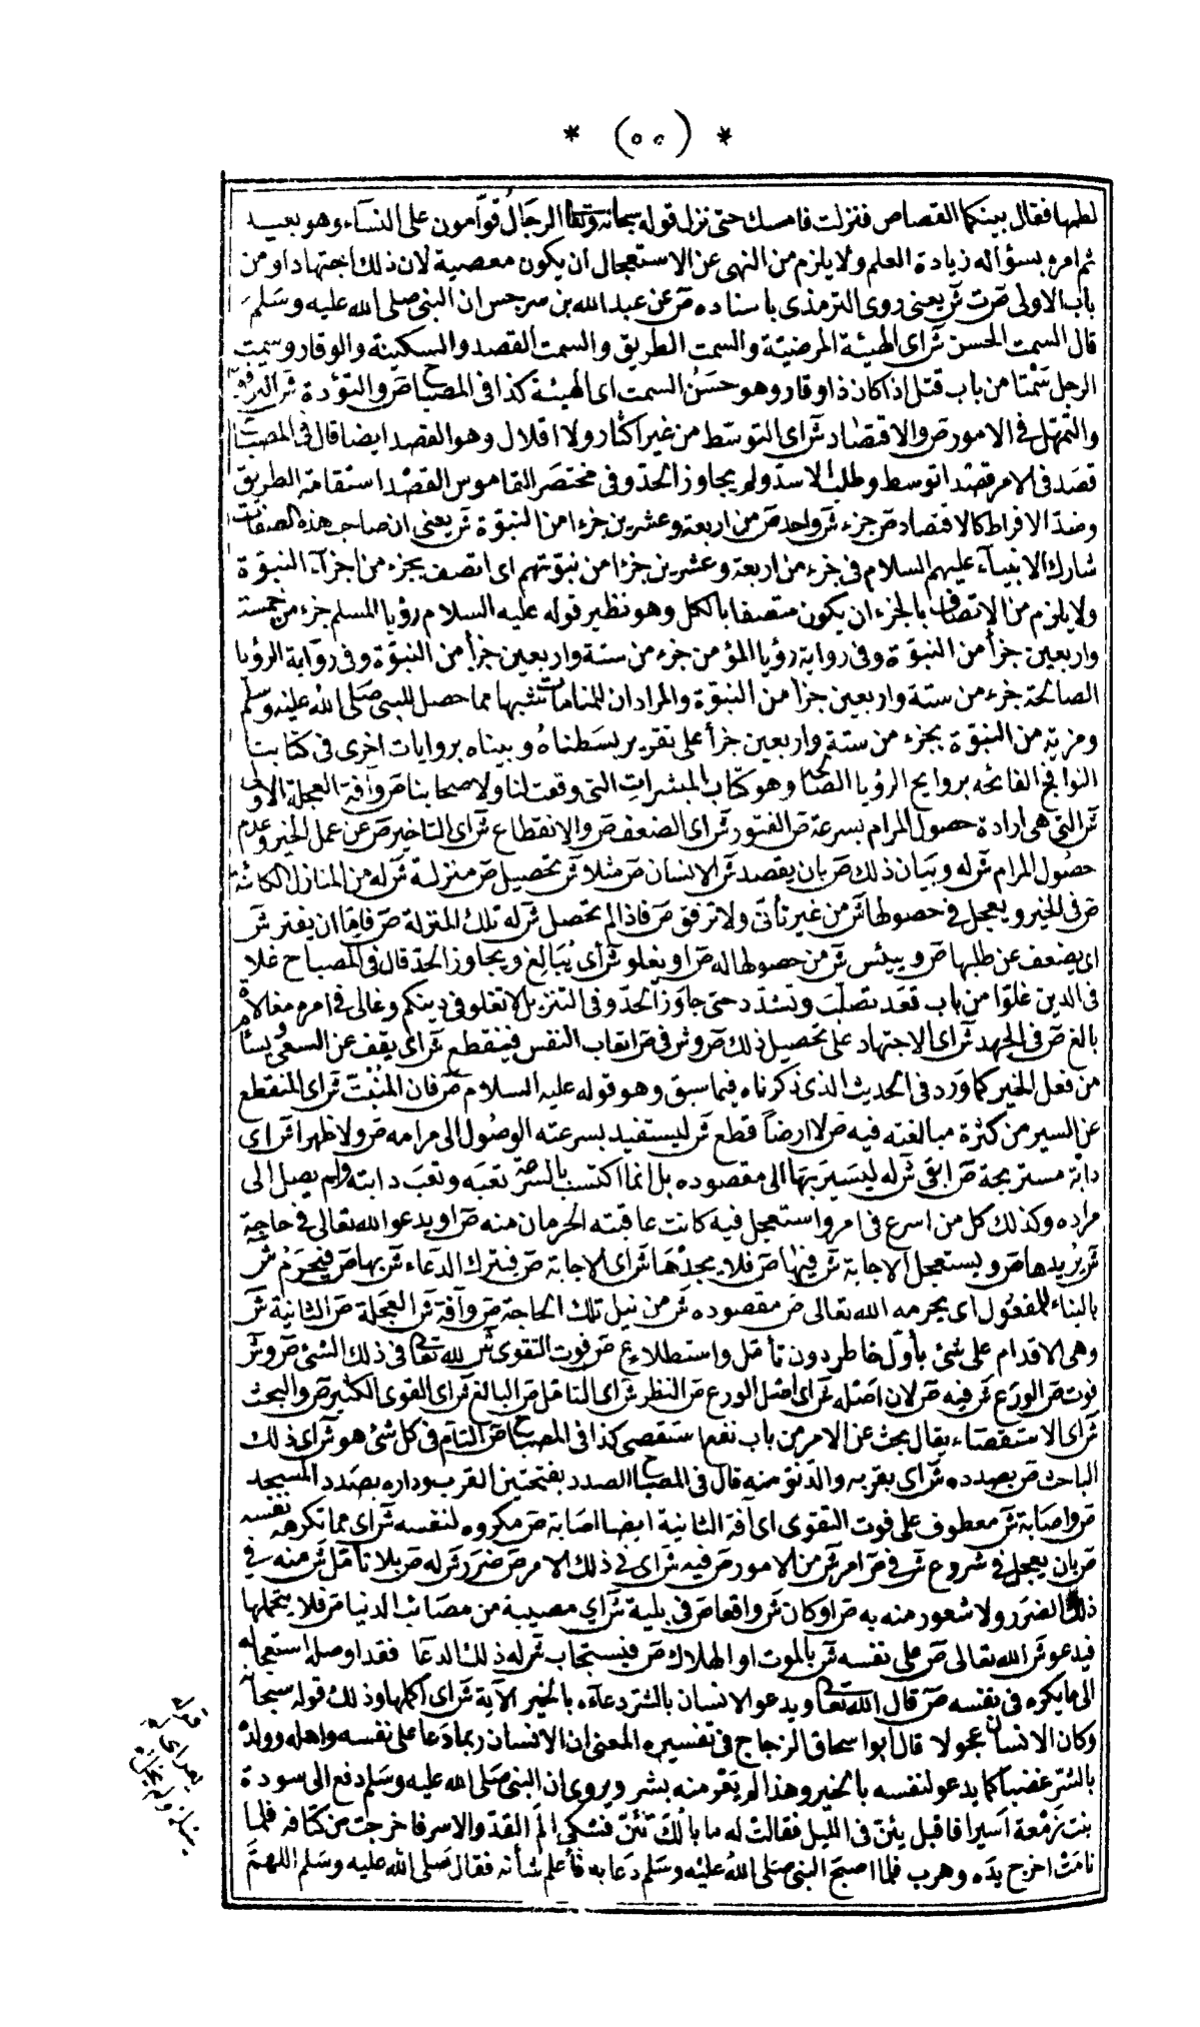 * (٥٥) *
لطمها فقال بينكما القصاص فنزلت فامسك حتى نزل قوله سبحانه وتعالى الرجَالُ قوّامون على النسَآء وهو بعيد
ثم امره بسؤاله زيادة العلم ولا يلزم من النهى عن الاستعجال أن يكون معصية لان ذلك اجتهاد او من
باب الاولى ص ت ش يعنى روى الترمذى باسناده ص عن عبد الله بن سرجس ان النبى صلى الله عليه وسَلمَ
قال السمت الحسن ش اى الهيئة المرضيّة والسمت الطريق والسمت القصد والسكينة والوقار وسمت
الرجل سَمْتا من باب قتل اذا كان ذا وقار وهو حسَنُ السمت اى الهيئة كذا فى المصباح ص والتؤدة ش الترفق
والتمهّل فى الامور ص والاقتصاد ش اى التوسّط من غير اكثار ولا اقلال وهو القصد ايضا قال فى المصباح
قصَد فى الامر قصْدا توسط وطلب الاسدّ ولم يجاوز الحدّ وفى مختصَر القاموس القصْد استقامة الطريق
وضدّ الافراط كالاقتصاد ص جزء ش واحد ص من اربعة وعشرين جزءا من النبوّة ش يعنى ان صاحب هذه الصفات
شارك الانبيآء عليهم السلام فى جزء من اربعة وعشرين جزءا من نبوّتهم اى اتصف بجزء من اجزآء النبوّة
ولا يلزم من الاتصاف بالجزء ان يكون متصفا بالكل وهو نظير قوله عليه السلام رؤيا المسلم جزء من خمسة
واربعين جزأ من النبوّة وفى رواية رؤيا المؤمن جزء من ستة واربعين جزأ من النبوّة وفى رواية الرؤيا
الصالحة جزء من ستة واربعين جزأ من النبوّة والمراد ان للمنامات شبها مما حصل للنبى صَلى الله عليه وسلم
ومزية من النبوّة بجزء من ستة واربعين جزأ على تقرير بسَطناهُ وبيناه بروايات اخرى فى كتابنا
النوافج الفائحه بروايح الرؤيا الصالحة وهو كتاب المبشرات التى وقعت لنا ولاصحابنا ص وآفة العجلة الاولى
ش التى هى ارادة حصول المرام بسرعة ص الفتور ش اى الضعف ص والانقطاع ش اى التاخير ص عن عمل الخير وعدم
حصُول المرام ش له وبيَان ذلك ص بان يقصد ش الانسان ص مثلا ش تحصيل ص منزلة ش له من المنازل الكائنة
ص فى الخير ويعجل فى حصولها ش من غير تأنى ولا ترفق ص فاذا لم تحصل ش له تلك المنزلة ص فامّا ان يفتر ش
اى يضعف عن طلبها ص وييئس ش من حصولها له ص او يغلو ش أى يُبَالِغ ويجاوز الحدّ قال فى المصباح غلا
فى الدين غلوّا من باب قعَد تصلّبَ وتشدّد حتى جاوَز الحدّ وفى التنزيل لا تغلو فى دينكم وغالى فى امره مغالاة
بالغ ص فى الجهد ش اى الاجتهاد على تحصيل ذلك ص و ش فى ص اتعاب النفس فينقطع ش اى يقف عن السعى
من فعل الخير كما وَرد فى الحديث الذى ذكرناه فيما سبق وهو قوله عليه السلام ص فان المُنْبَتّ ش اى المنقطع
عن السير من كثرة مبالغته فيه ص لا ارضاً قطع ش ليستفيد بسرعته الوصُول الى مرامه ص ولا ظهرا ش اى
دابّة مستريحة ص ابقى ش له ليسَيرَ بها الى مقصوده بل انما اكتسب بالسرعة تعبَه وتعبَ دابته ولم يصل الى
مراده وكذلك كل من اسرع فى امر واستعجل فيه كانت عاقبته الحرمان منه ص او يدعو الله تعالى فى حاجة
ش يُريدها ص ويستعجل الاجابة ش فيها ص فلا يجدْهَا ش اى الاجابة ص فيترك الدعاء ش بها ص فيحرَمُ ش
بالبناء للمفعُول اى يحرمه الله تعالى ص مقصوده ش من نيل تلك الحاجة ص وآفة ش العجَلة ص الثانية ش
وهى الاقدام على شئ بأوّل خاطر دون تأمّل واستطلاع ص فوت التقوى ش لله تعالى فى ذلك الشئ ص و ش
فوت ص الورَع ش فيه ص لان اصْله ش اى اصْل الورع ص النظر ش اى التامّل ص البالغ ش اى القوى الكثير ص والبحث
ش اى الاستقصَاء يقال بحث عن الامر من باب نفع استقصى كذا فى المصباح ص التامّ فى كل شئ هو ش اى ذلك
الباحث ص بصدده ش اى بقربه والدّنوّ منه قال فى المصباح الصدد بفتحتين القرب وداره بصَدد المسجد
ص واصَابة ش معطوف على فوت التقوى اى آفة الثانية ايضا اصَابة ص مكروه لنفسه ش اى مما تكرهه نفسه
ص بان يعجل فى شروع ش فى ص امر ش من الامور ص فيه ش اى فى ذلك الامر ص ضرَر ش له ص بلا تأمّل ش منه فى
ذلك الضرَر ولا شعور منه به ص او كان ش واقعا ص فى بلية ش اي مصيبة من مصَائب الدنيا ص فلا يتحملها
فيدعو ش الله تعالى ص على نفسه ش بالموت او الهلاك ص فيستجاب ش له ذلك الدعَا فقد اوصله استعجاله
الى ما يكره فى نفسه ص قال الله تعالى ويدعو الانسان بالشرّ دعآءه بالخير الآية ش اى اكملها وذلك قوله سبحانه
وكان الانسان عجولا قال أبو اسحاق الزجاج فى تفسيره المعنى ان الانسان ربما دَعا على نفسه واهله وولده
بالشرّ غضباً كما يدعو لنفسه بالخير وهذا لم يَعْرَ منه بشر ويروى ان النبى صَلى الله عليه وسَلم دفع الى سودة
بنت زَمْعة اسيرا فاقبل يئنّ فى الليل فقالت له ما بالُكَ تَئنّ فشكى ألَمَ القدّ والاسر فاخرجت من كتافه فلما
نامَتْ اخرج يدَه وهرب فلما اصبحَ النبى صَلى اللهُ عليْه وسَلم دَعا به فأعلم شأنه فقال صَلى الله عليه وسَلم اللهمّ